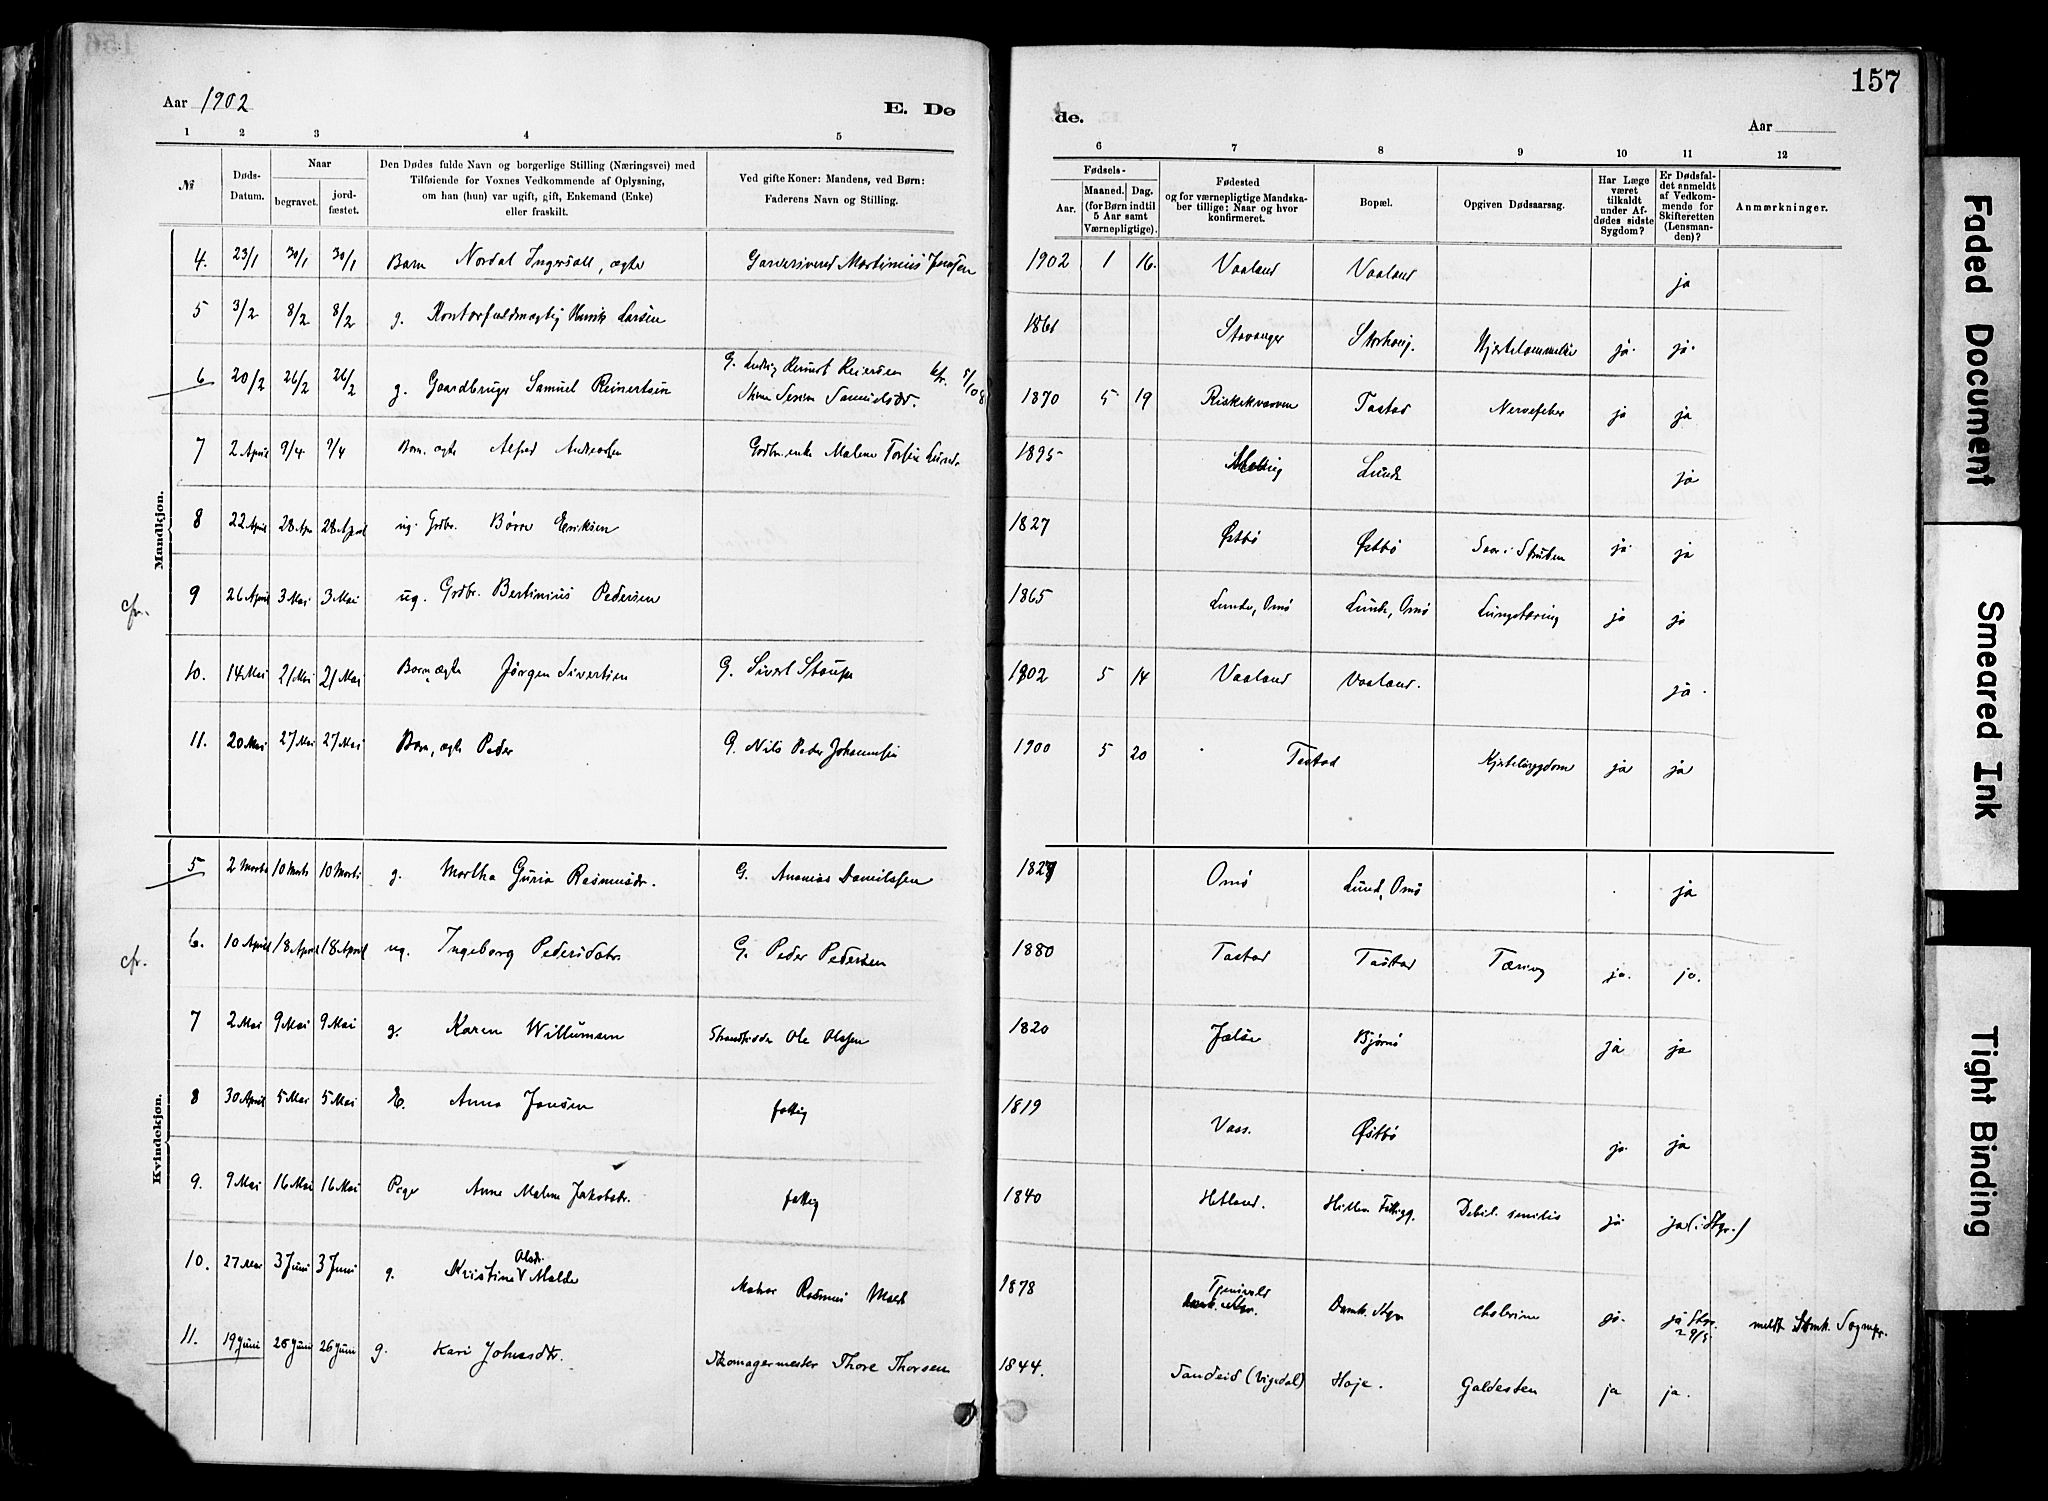 157
Aar 1902
E. Dø
de.
Aar
1 2 3 4 5 6 7 8 9 10 11 12
№
Døds-
Datum.
Naar
begravet.
jord-
fæstet.
Den Dødes fulde Navn og borgerlige Stilling (Næringsvei) med
Tilføiende for Voxnes Vedkommende af Oplysning,
om han (hun) var ugift, gift, Enkemand (Enke)
eller fraskilt.
Ved gifte Koner: Mandens, ved Børn:
Faderens Navn og Stilling.
Fødsels-
Aar.
Maaned. Dag.
(for Børn indtil
5 Aar samt
Værnepligtige).
Fødested
og for værnepligtige Mandska-
ber tillige: Naar og hvor
konfirmeret.
Bopæl.
Opgiven Dødsaarsag.
Har Læge
været
tilkaldt
under Af-
dødes sidste
Sygdom?
Er Dødsfal-
det anmeldt
af Vedkom-
mende for
Skifteretten
(Lensman-
den)?
Anmærkninger.
Mandkjøn.
4. 23/1 30/1 30/1 Barn Nordal Ingersoll, ægte Martinius Jensen 1902 1 16. Vaaland Vaaland ja
5 3/2 8/2 8/2 g. Kontorfuldmægtig Larsen 1861 Stavanger Storhaug. ja. ja.
6 20/2 26/2 26/2 g. Gaardbruger Samuel Reinertsen G. Reiersen cfr. 1870 5 19 Tastad Nervefeber ja ja
7 2 April 9/4 9/4 Barn, ægte Alfred Andreassen Grdbr. enke Malene 1895 Lunde ja
8 22 April 28 Apr 28 April ug. Grdbr. Børre Eriksen 1827 Østbø Østbø Saar i Struben ja. ja
cfr. 9 26 April 3 Mai 3 Mai ug. Grdbr. Bertinius Pedersen 1865 Lunde, Omø Lunde, Omø Lungetæring ja ja
10. 14 Mai 21 Mai 21 Mai Barn, ægte Jørgen Sivertsen G. Sivert 1902 5 14 Vaaland Vaaland. ja.
11. 20 Mai 27 Mai 27 Mai Barn, ægte Peder G. Nils Peder Johannesen 1900 5 20 Tastad Hjertesygdom ja ja
Kvindekjøn.
5 2 Marts 10 Marts 10 Marts g. Martha Guria Rasmusdr. G. Ananias Danielsen Omø Lund, Omø ja
cfr. 6. 10 April 18 April 18 April ug. Ingeborg Pedersdatr. G. Peder Pedersen 1880 Tastad Tastad Tæring ja. ja.
7 2 Mai 9 Mai 9 Mai g. Karen Willumsen Strandsidder Ole Olssen 1820 Jelse Bjørnø ja ja
8 30 April 5 Mai 5 Mai E. Anna Jansen fattig 1819 Voss. Østbø ja. ja
9. 9 Mai 16 Mai 16 Mai Pige Anne Malene Jakobsdr. fattig 1840 Hetland. Debil. senilis ja ja (i Stgr.)
10. 27 Mai 3 Juni 3 Juni g. Kristine Olsdr. Malde Rasmus 1878 ja. ja Stgr. 29/5 meldt Domk. Sognepr.
11. 19 Juni 26 Juni 26 Juni g. Kari Johnsdtr. Skomagermester Thore Thorsen 1844. Sandeid (Vigedal) Høie. Galdesten ja ja.
Faded Document
Smeared Ink
Tight Binding